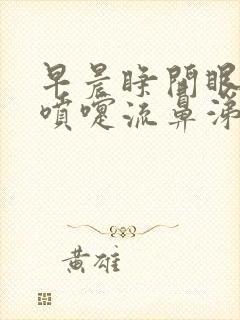 早晨睁開眼
噴嚏流鼻涕
黄雄